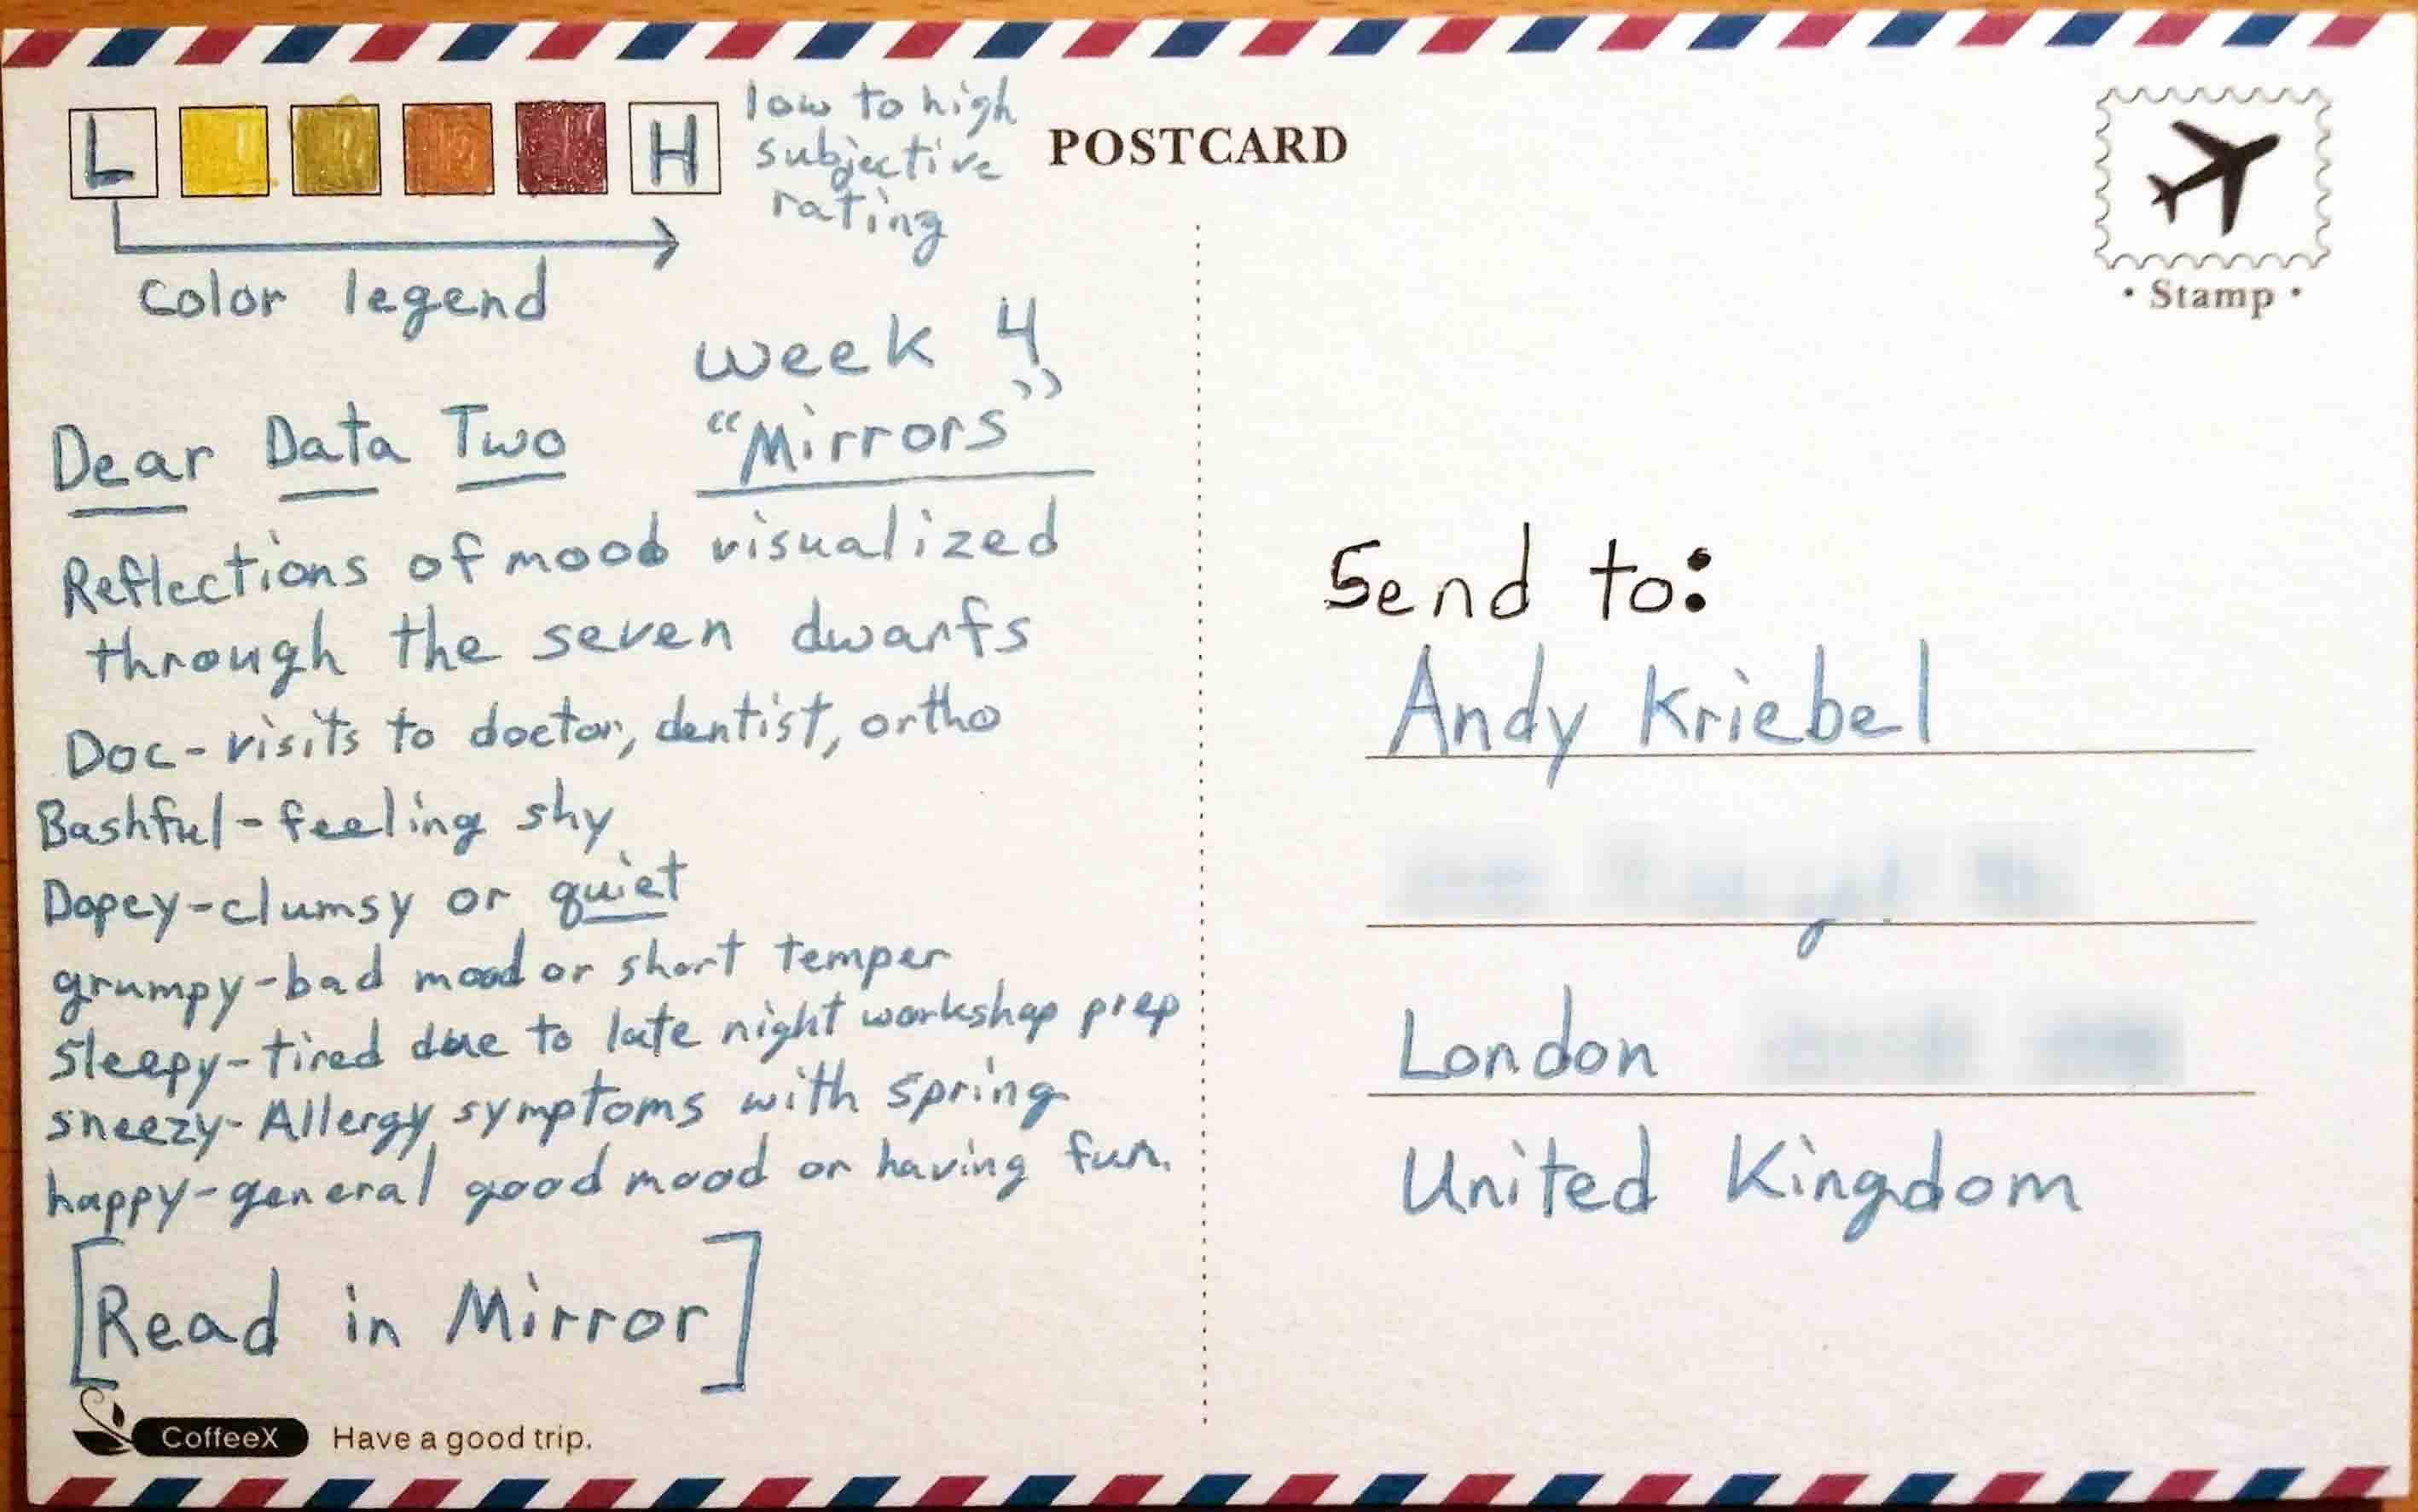 L H
low to high
subjective
rating
color legend
week 4
"Mirrors"
Dear Data Two
Reflections of mood visualized
through the seven dwarfs
Doc-visits to doctor, dentist, ortho
Bashful-feeling shy
Dopey-clumsy or quiet
grumpy-bad mood or short temper
Sleepy-tired due to late night workshop prep
sneezy-Allergy symptoms with spring
happy-general good mood or having fun.
[Read in Mirror]
CoffeeX Have a good trip.
POSTCARD
• Stamp •
Send to:
Andy Kriebel
London
United Kingdom